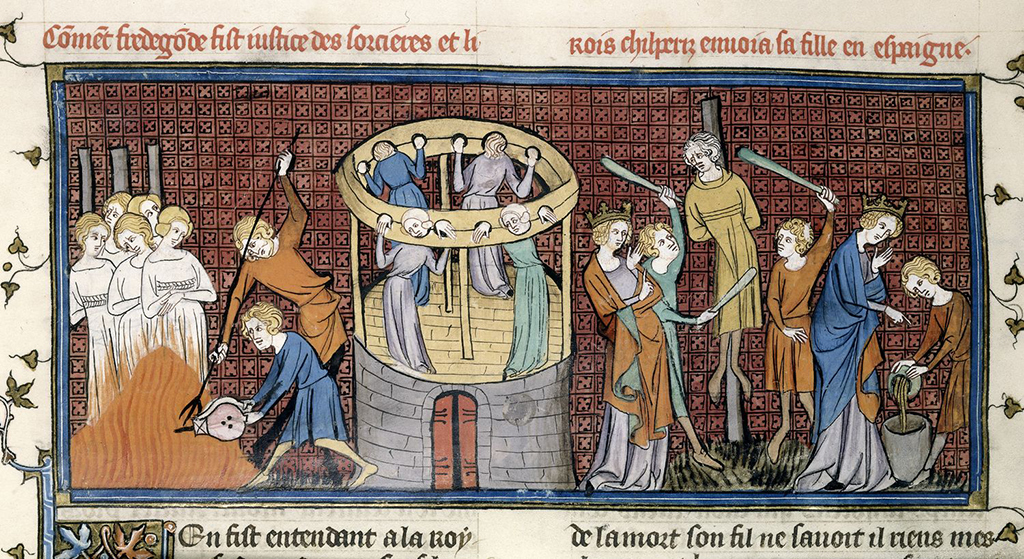 Cõmẽt fredegõde fist iustice des sorcieres et li
rois chilperiz enuoia sa fille en espaigne.
En fist entendant a la roy
de la mort son fil ne sauoit il riens mes